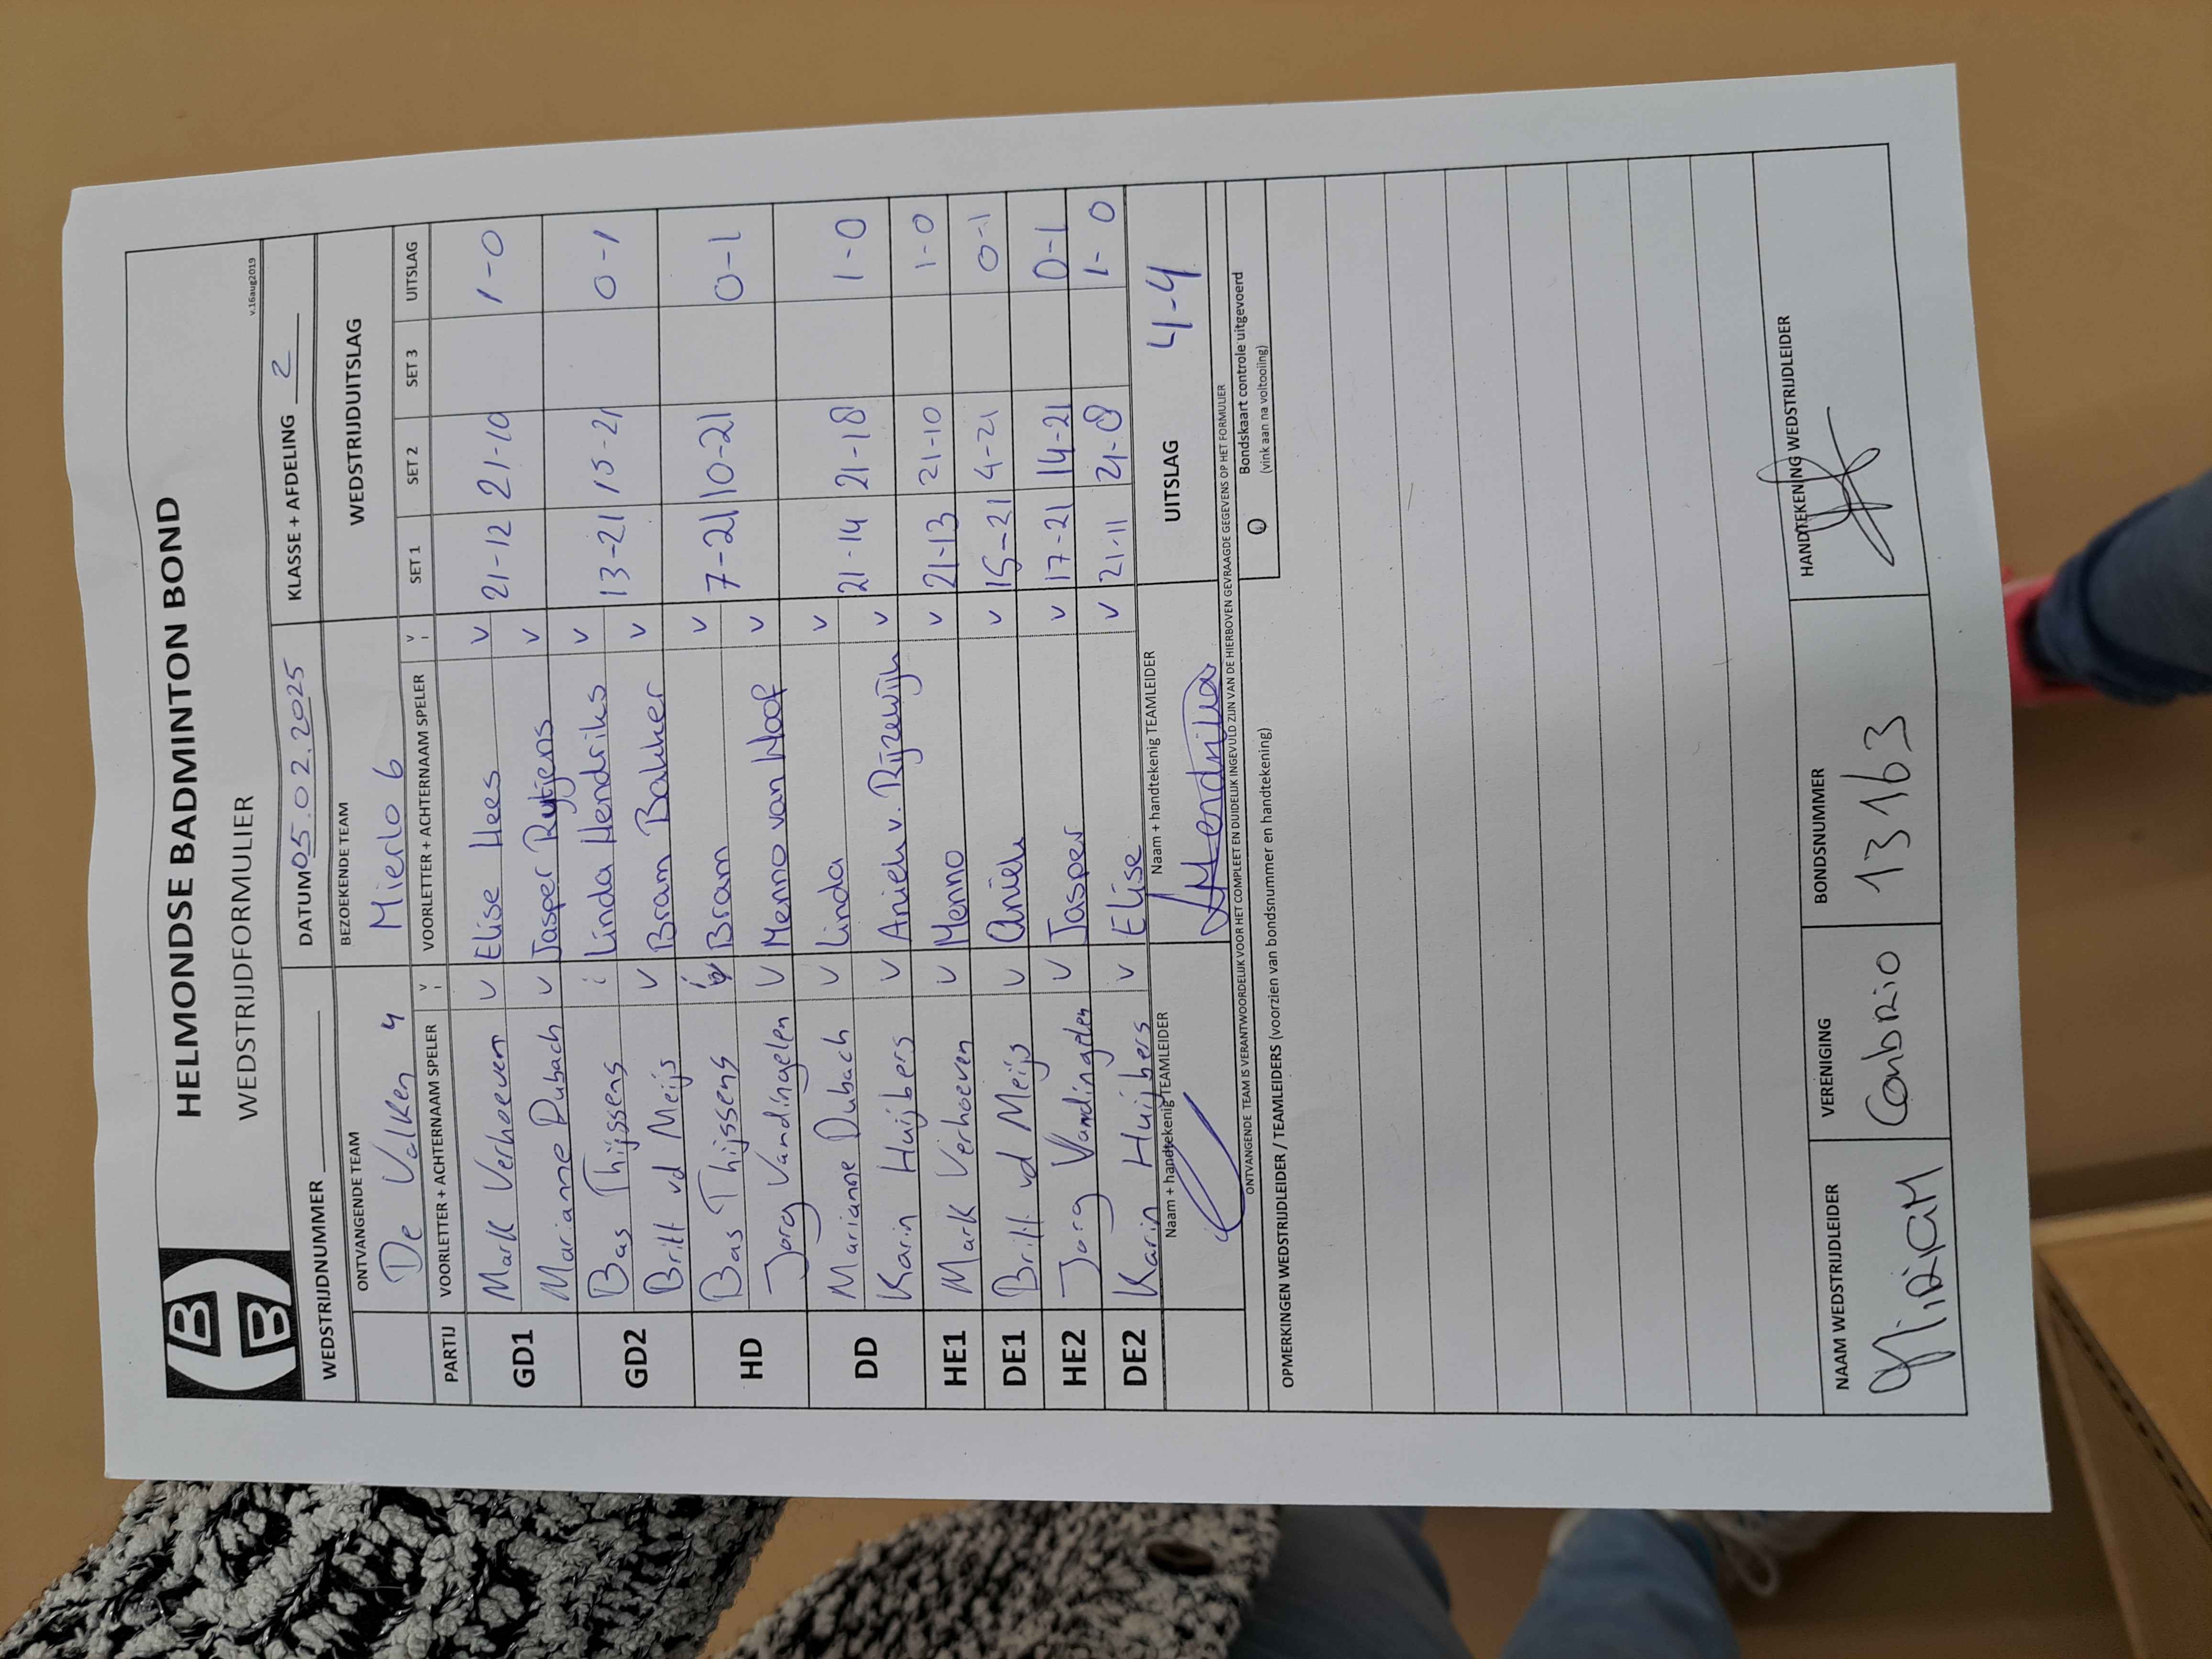 HELMONDSE BADMINTON BOND
WEDSTRIJDFORMULIER
v.16aug2019
WEDSTRIJDNUMMER DATUM 05.02.2025 KLASSE + AFDELING 2
ONTVANGENDE TEAM BEZOEKENDE TEAM WEDSTRIJDUITSLAG
De Valken 4 Mierlo 6
PARTIJ VOORLETTER + ACHTERNAAM SPELER V VOORLETTER + ACHTERNAAM SPELER V SET 1 SET 2 SET 3 UITSLAG
GD1 Mark Verhoeven V Elise Hees V 21-12 21-10 1-0
Marianne Dubach V Jasper Rutjens V
GD2 Bas Thijssens i Linda Hendriks V 13-21 15-21 0-1
Britt vd Meijs V Bram Bakker V
HD Bas Thijssens i Bram V 7-21 10-21 0-1
Jorg Vandingelen V Menno van Hoof V
DD Marianne Dubach V Linda V 21-14 21-18 1-0
Karin Huijbers V Aniek v. Rijzewijk V
HE1 Mark Verhoeven V Menno V 21-13 21-10 1-0
DE1 Britt vd Meijs V Aniek V 15-21 4-21 0-1
HE2 Jorg Vandingelen V Jasper V 17-21 14-21 0-1
DE2 Karin Huijbers V Elise V 21-11 21-8 1-0
Naam + handtekenig TEAMLEIDER Naam + handtekenig TEAMLEIDER UITSLAG 4-4
ONTVANGENDE TEAM IS VERANTWOORDELIJK VOOR HET COMPLEET EN DUIDELIJK INGEVULD ZIJN VAN DE HIERBOVEN GEVRAAGDE GEGEVENS OP HET FORMULIER
O Bondskaart controle uitgevoerd
(vink aan na voltooiing)
OPMERKINGEN WEDSTRIJDLEIDER / TEAMLEIDERS (voorzien van bondsnummer en handtekening)
NAAM WEDSTRIJDLEIDER VERENIGING BONDSNUMMER HANDTEKENING WEDSTRIJDLEIDER
MiRiaM ConbRio 13163